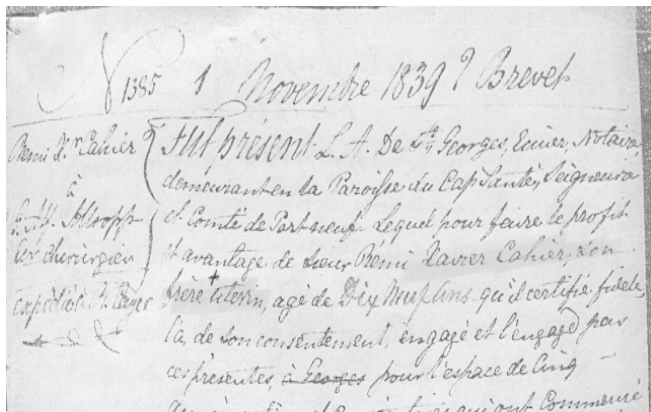 1385 1 Novembre 1839 Brevet
Rémi X.r Cahier
à
Alsopp
Ecr chirurgien
expédié à
Fut présent L. A. De St Georges, Ecuier, Notaire,
demeurant en la Paroisse du Cap Santé, Seigneurie
et Comté de Portneuf. Lequel pour faire le profit
et avantage de Sieur Rémi Xavier Cahier, son
frère uterin, agé de Dix Neuf ans qu'il certifie, fidele,
la, de son consentement, engagé et l'engage par
ces présentes, à Georges pour l'espace de Cinq
qui ont Commencé